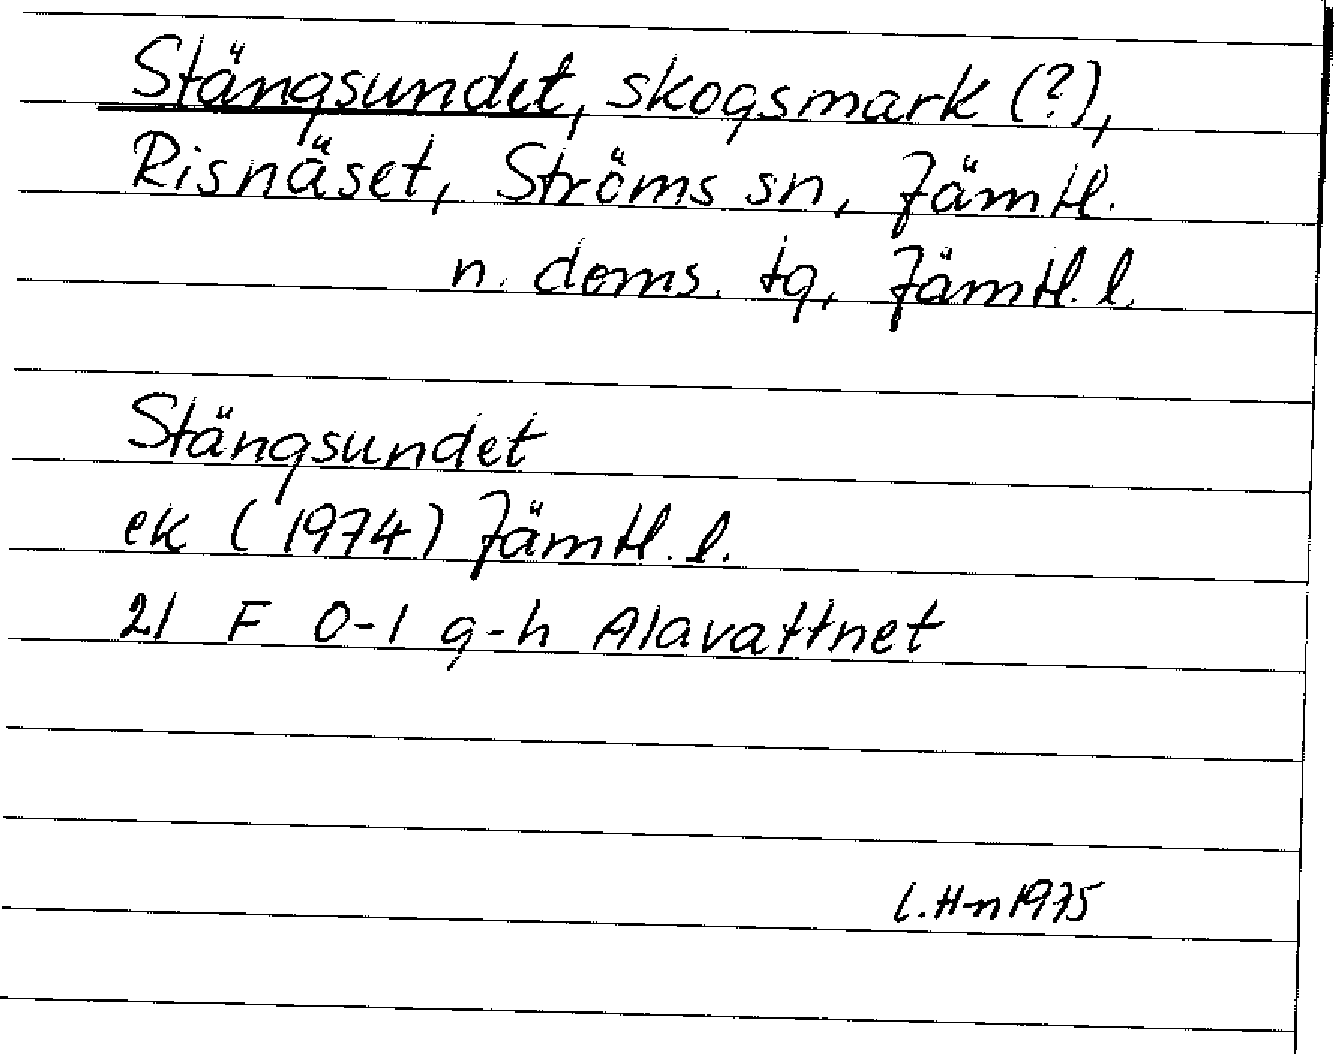 Stängsundet, skogsmark (?),
Risnäset, Ströms sn, Jämtl.
n. doms. tg, Jämtl. l.
Stängsundet
ek (1974) Jämtl. l.
21 F 0-1 g-h Alavattnet
L.H-n 1975